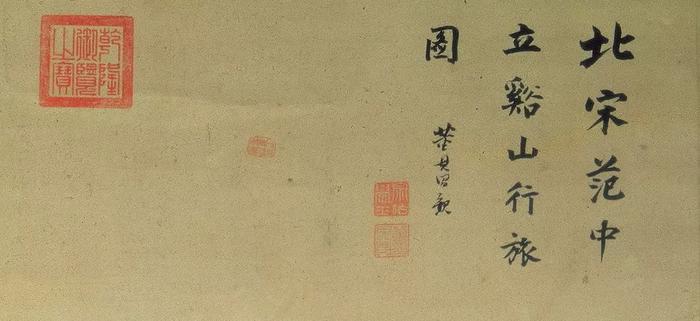 北宋范中
立谿山行旅
圖
董其昌觀
乾隆
御覽
之寶